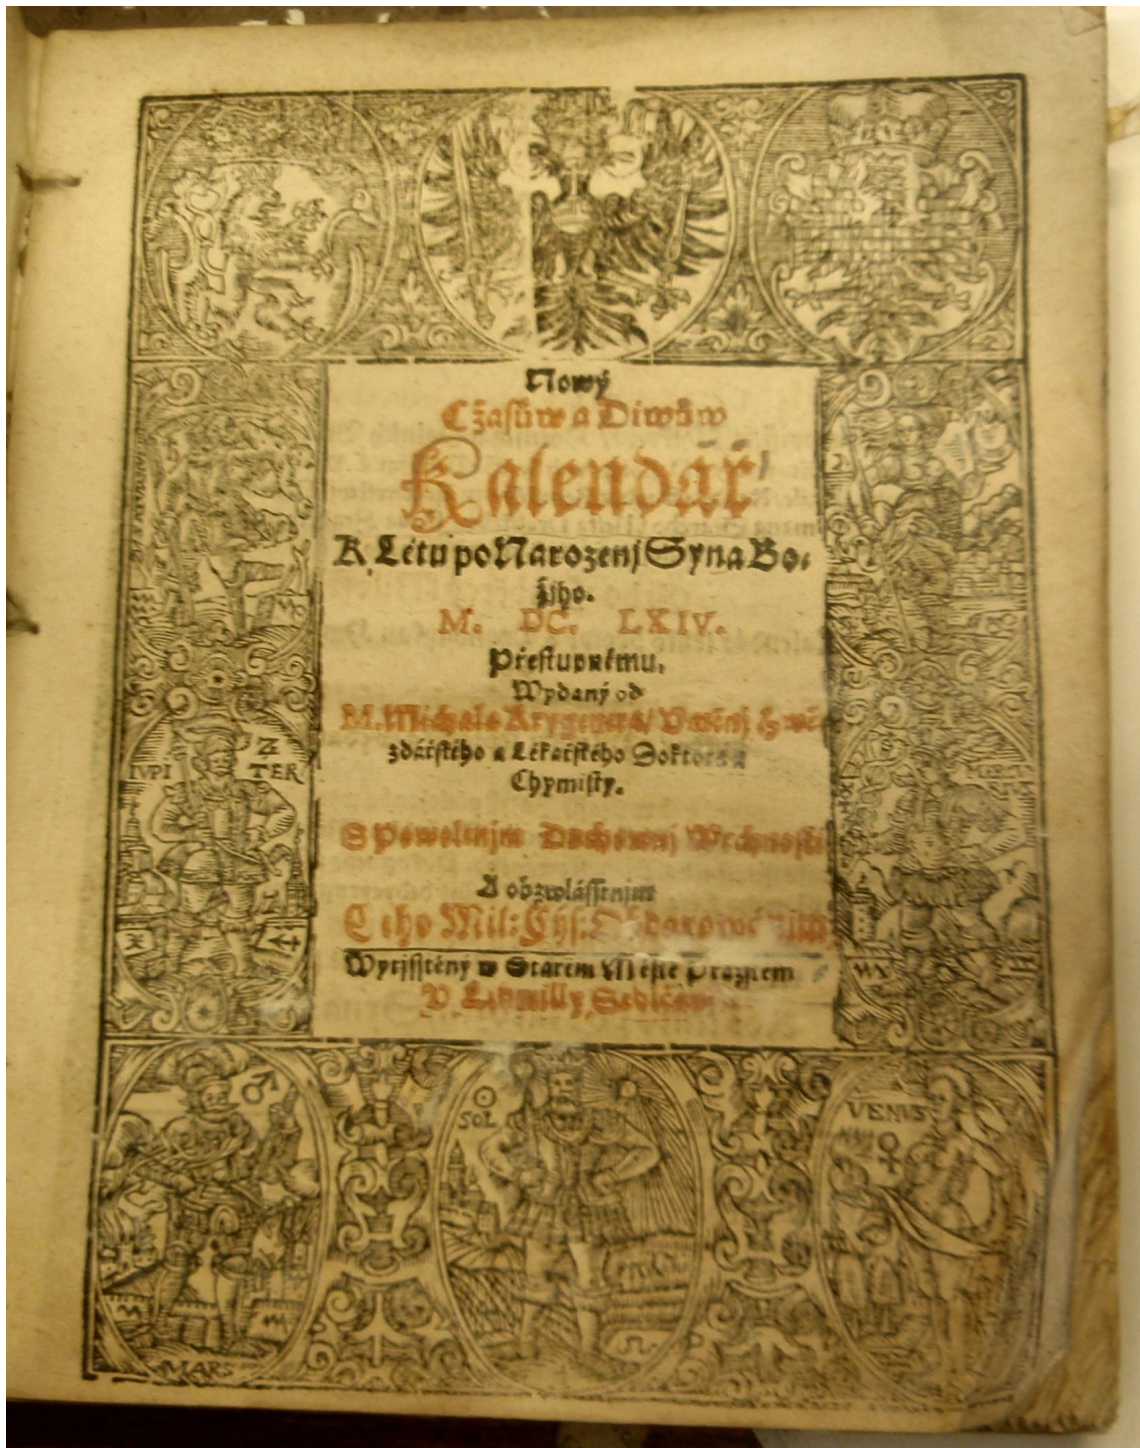 Nowý
Cžasůw a Diwůw
Kalendář/
K Létu po Narozenj Syna Bo-
žjho.
M. DC. LXIV.
Přestupnému.
Wydaný od
M. Michala Krygenera/
zdářského a Lékařského Doktora a
Chymisty.
S Powolenjm Duchownj Wrchnosti
A obzwlásstnjm
Geho Mil: Cýs:
Wytisstěný w Starém Městě Pražském
V Lidmilly Sedlčanské
IVPI
TER
MARS
SOL
VENUS